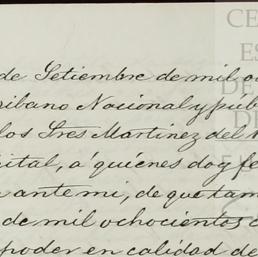 de Setiembre de mil o
ribano Nacional y púb
los Sres Martinez del
ital, a' quiénes doy fe
ante mi, de que tam
de mil ochocientos
poder en calidad de
CE
ES
DE
DE